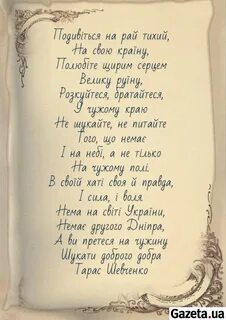 Подивіться на рай тихий,
На свою країну,
Полюбіте щирим серцем
Велику руїну,
Розкуйтеся, братайтеся,
У чужому краю
Не шукайте, не питайте
Того, що немає
І на небі, а не тілько
На чужому полі.
В своїй хаті своя й правда,
І сила, і воля.
Нема на світі України,
Немає другого Дніпра,
А ви претеся на чужину
Шукати доброго добра
Тарас Шевченко
Gazeta.ua